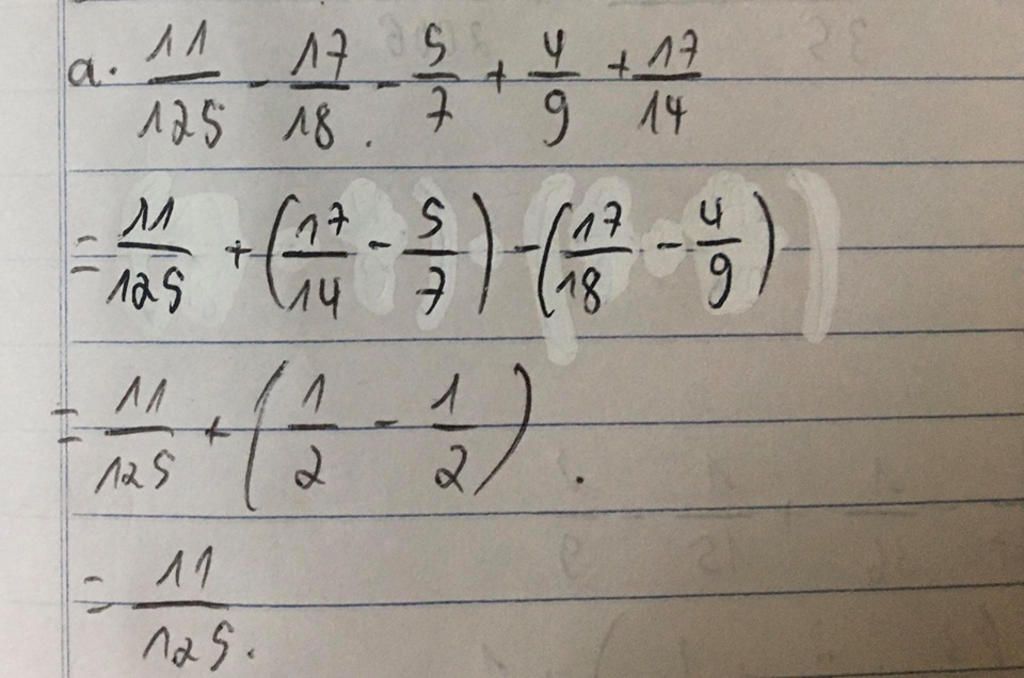 a. 11/125 - 17/18 - 5/7 + 4/9 + 17/14
= 11/125 + (17/14 - 5/7) - (17/18 - 4/9)
= 11/125 + (1/2 - 1/2).
= 11/125.